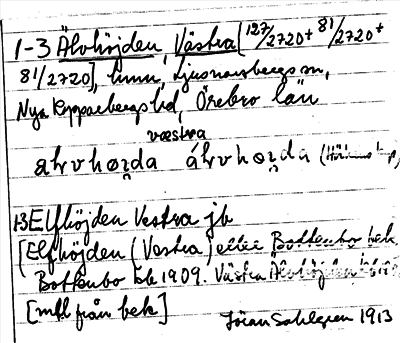 1-3 Älvhöjden, Västra [127/2720+ 81/2720+
81/2720], hmn, Ljusnarsbergs sn,
Nya Kopparbergs hd, Örebro län
væstra
alvhøi̯da álvhøi̯da
13 Elfhöjden Vestra jb
[Elfhöjden (Vestra) eller Bottenbo bek
Bottenbo tb 1909. Västra Älvhöjden
[mtl från bek]
Jöran Sahlgren 1913